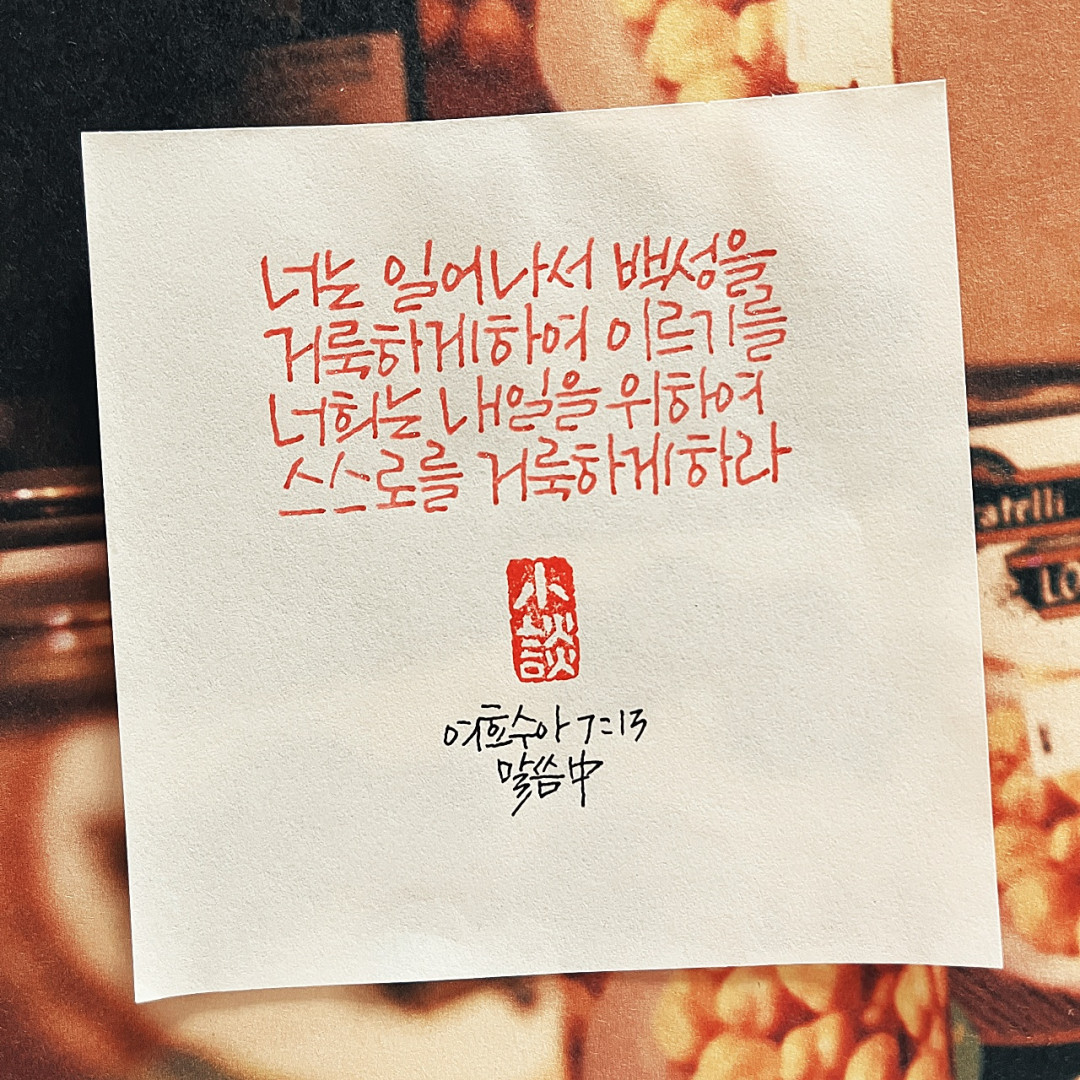 너는 일어나서 백성을
거룩하게하여 이르기를
너희는 내일을 위하여
스스로를 거룩하게하라
小談
여호수아 7:13
말씀中
atelli
LO